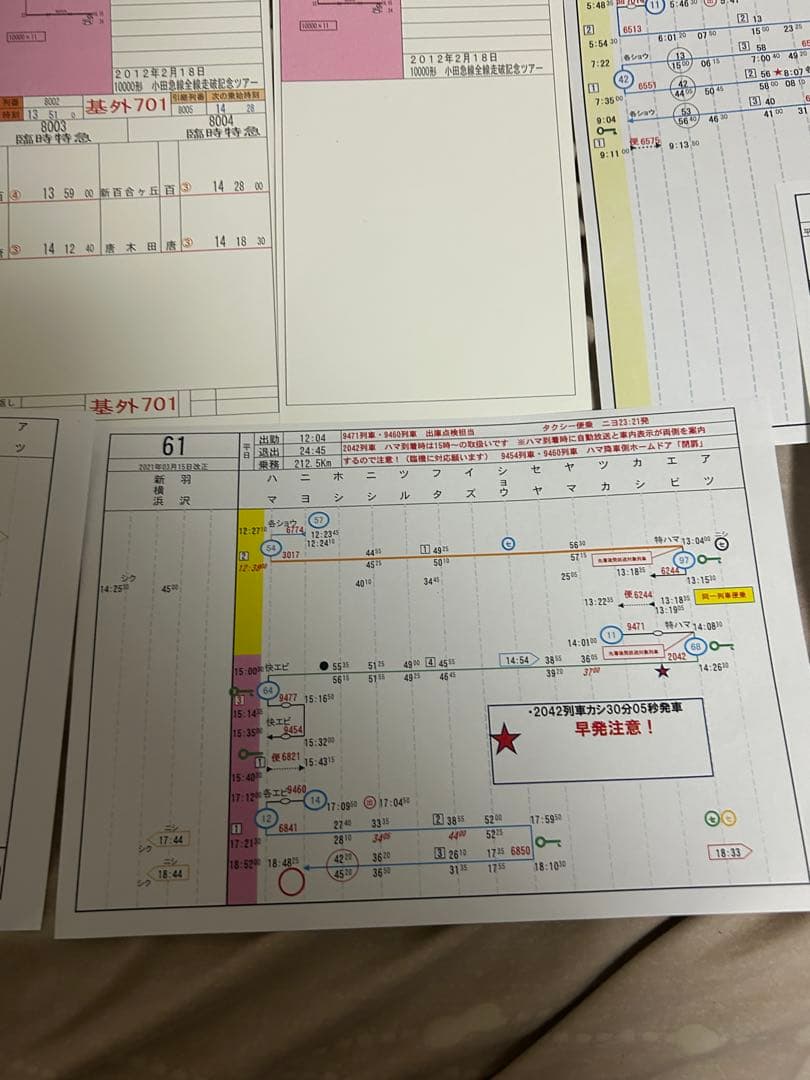 10000×11
2012年2月18日
10000形 小田急線全線走破記念ツアー
列番 8002
時刻 13 51 0
基外701
引継列番 次の乗継時刻
8005 14 28
8003
臨時特急
8004
臨時特急
④ 13 59 00 新百合ヶ丘 百 ③ 14 28 00
③ 14 12 40 唐木田 唐 ③ 14 18 30
基外701
10000×11
2012年2月18日
10000形 小田急線全線走破記念ツアー
5:48 35
11
5:46 30
2 6513
5:54 30
6:01 20
07 50
2 13
15 00
23 25
7:22
各ショウ
13
15 00
06 15
3 58
7:00 40
49 20
42
1 6551
7:35 00
42
44 05
50 45
2 56 ★8:07
58 00
08 10
9:04
各ショウ
53
56 40
46 30
3 40
41 00
31
1 便6575
9:11 00
9:13 50
ア
ツ
61
2021年03月15日改正
平日
出勤 12:04
退出 24:45
乗務 212.5Km
タクシー便乗 ニヨ23:21発
9471列車・9460列車 出庫点検担当
2042列車 ハマ到着時は15時～の取扱いです ※ハマ到着時に自動放送と車内表示が両側を案内
するので注意!(臨機に対応願います) 9454列車・9460列車 ハマ降車側ホームドア「閉扉」
新横浜 羽沢 ハマ ニヨ ホシ ニシ ツル フタ イズ ショウ セヤ ヤマ ツカ カシ エビ アツ
12:27 10
各ショウ
6774
57
12:23 45
12:24 10
54
2 3017
12:38 00
44 55
45 25
1 49 25
50 10
セ
56 30
57 15
特ハマ 13:04 00
ニシ
セ
97
シク
14:25 30
45 00
40 10
34 45
25 05
13:18 35
6244
13:15 30
13:22 35
便6244
13:18 35
13:19 05
同一列車便乗
11
9471
特ハマ 14:08 30
14:01 00
68
2042
14:26 30
15:00
快エビ
55 35
56 15
51 25
51 55
49 00
49 25
4 45 55
46 45
14:54
38 55
39 20
36 05
37 00
64
3
9477
15:16 50
15:14
快エビ
15:35 00
9454
15:32 00
1 便6821
15:43 15
15:40
・2042列車カシ30分05秒発車
早発注意!
17:12 00
各エビ 9460
14
17:09 50
出 17:04 50
12
1 6841
17:21 30
27 40
28 10
33 35
34 05
2 38 55
44 00
52 00
52 25
17:59 50
セ セ
ニシ
17:44
シク
18:52 00
18:48 25
42 20
45 20
36 20
36 50
3 26 10
31 35
17 35
17 55
6850
18:10 30
18:33
ニシ
18:44
シク